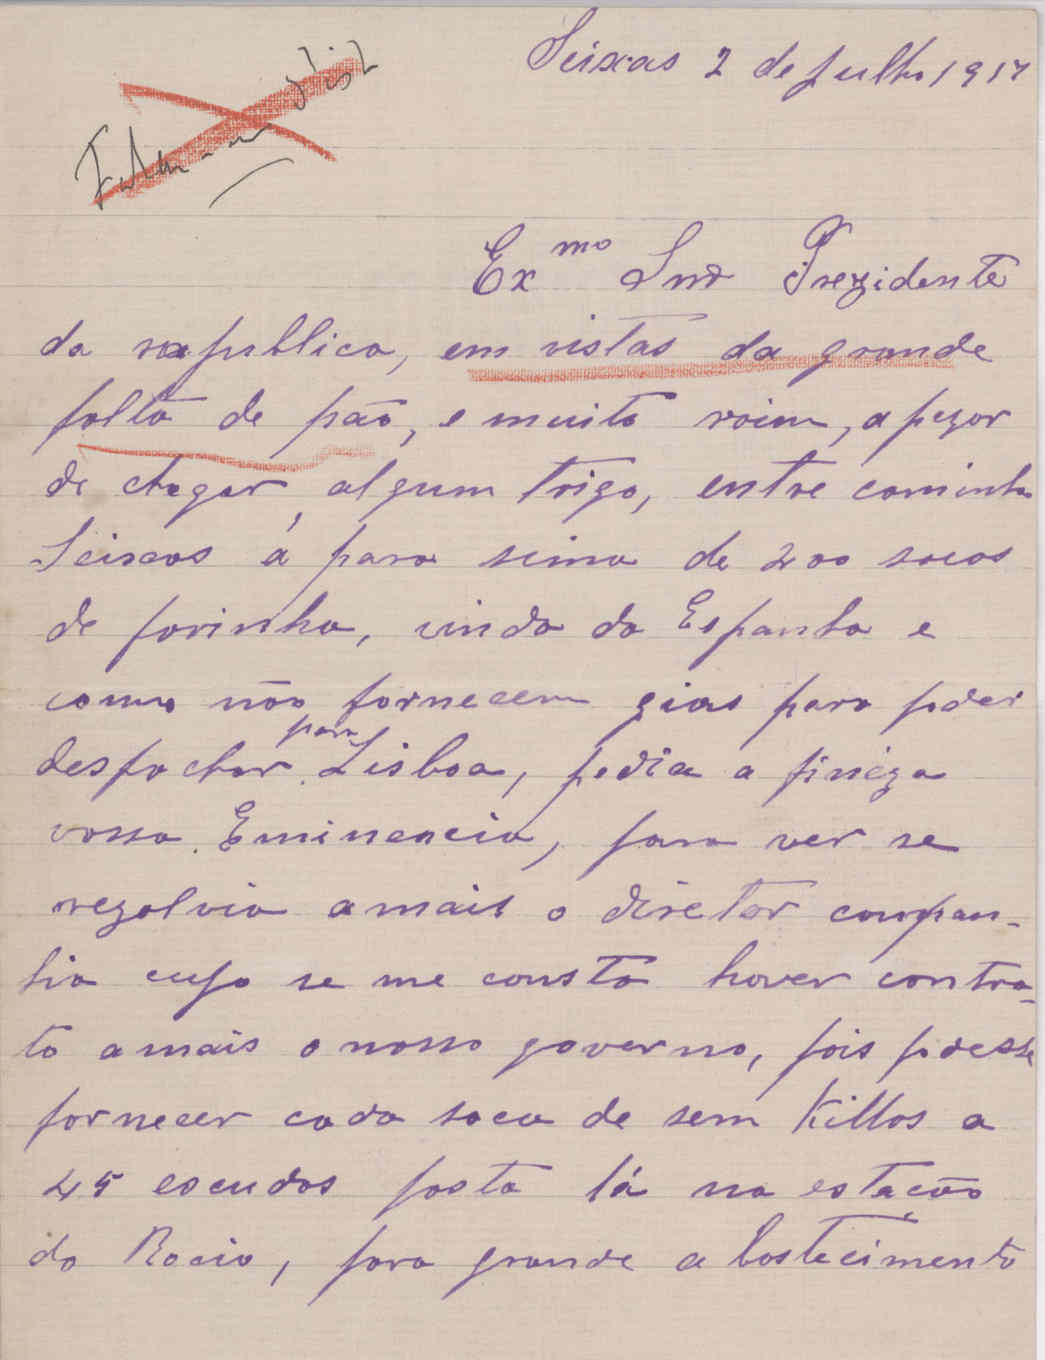 Seixas 2 de Julho 1917
Ex mo Snr Prezidente
da republica, em vistas da grande
falta de pão, e muito roim, apezar
de chegar algum trigo, entre caminha
Seixas á para sima de 200 sacos
de farinha, vinda da Espanha e
como não fornecem gias para poder
despachar para Lisboa, pedia a fineza
vossa Eminencia, para ver se
rezolvia amais o diretor compan-
hia cujo se me consta haver contra-
to amais o nosso governo, pois podesse
fornecer cada saca de sem Killos a
45 escudos posta lá na estação
do Rocio, para grande abastecimento